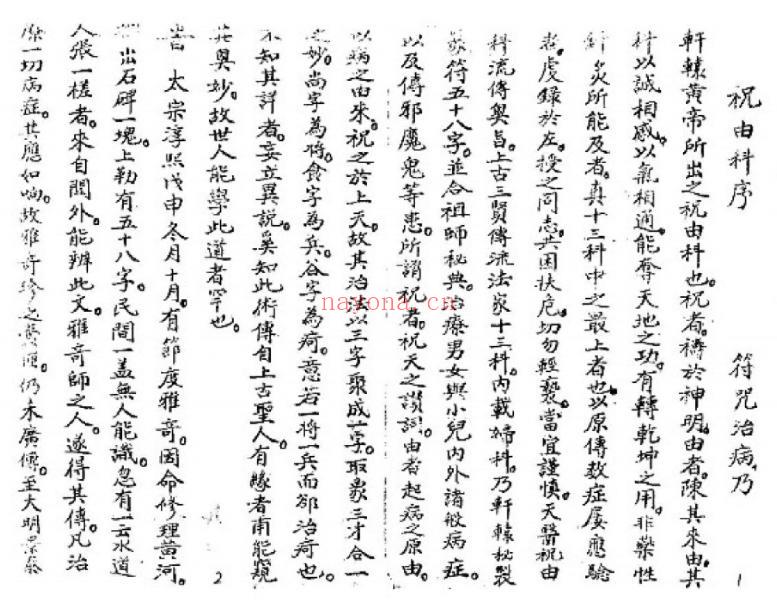 祝由科序　符咒治病，乃
軒轅黃帝所出之祝由科也。祝者，禱於神明。由者，陳其來由。其
科以誠相感，以氣相通，能奪天地之功，有轉乾坤之用。非藥性
針灸所能及者。真十三科中之最上者也。以原傳数症屡應驗
者。虔錄於左。授之同志。共困扶危。切勿輕褻。當宜謹慎。天醫祝由
科流傳奥旨。上古三賢傳流法家十三科。内載婦科。乃軒轅秘製
符五十八字。並合祖師秘典。治療男女與小兒内外諸般病症。
以及傳邪魔鬼等患。所謂祝者。祝天之讚詞。由者起病之原由。
以病之由来。祝之於上天。故其治以三字聚成一字。取象三才合一
之妙。尚字為将。食字為兵。谷字為疴。意若一将一兵而卻治疴也。
不知其詳者。妄立異説。奚知此術傳自上古聖人。有緣者甫能窺
其奥妙。故世人能學此道者罕也。
2
昔　太宗淳熙戊申冬月十月。有節度雅奇。因命修理黄河。
出石碑一塊。上勒有五十八字。民間一盖無人能識。忽有一云水道
人張一槎者。來自閩外。能辨此文。雅奇師之人。遂得其傳。凡治
療一切病症。其應如响。故雅奇珍之仍未廣傳。至大明景泰
1
nayona.cn